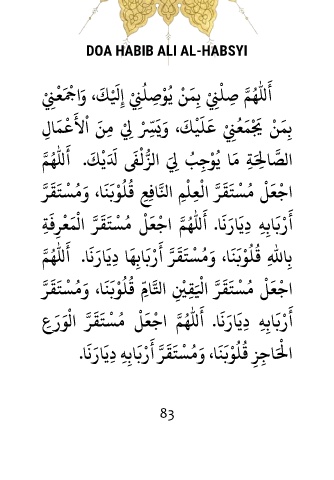 DOA HABIB ALI AL-HABSYI
أَللّٰهُمَّ صِلْنِيْ بِمَنْ يُوْصِلُنِيْ إِلَيْكَ، وَاجْمَعْنِيْ
بِمَنْ يَجْمَعُنِيْ عَلَيْكَ، وَيَسِّرْ لِيْ مِنَ اْلأَعْمَالِ
الصَّالِحَةِ مَا يُوْجِبُ لِيَ الزُّلْفَى لَدَيْكَ. أَللّٰهُمَّ
اجْعَلْ مُسْتَقَرَّ الْعِلْمِ النَّافِعِ قُلُوْبَنَا، وَمُسْتَقَرَّ
أَرْبَابِهِ دِيَارَنَا. أَللّٰهُمَّ اجْعَلْ مُسْتَقَرَّ الْمَعْرِفَةِ
بِاللهِ قُلُوْبَنَا، وَمُسْتَقَرَّ أَرْبَابِهَا دِيَارَنَا. أَللّٰهُمَّ
اجْعَلْ مُسْتَقَرَّ الْيَقِيْنِ التَّامِّ قُلُوْبَنَا، وَمُسْتَقَرَّ
أَرْبَابِهِ دِيَارَنَا. أَللّٰهُمَّ اجْعَلْ مُسْتَقَرَّ الْوَرَعِ
الْحَاجِزِ قُلُوْبَنَا، وَمُسْتَقَرَّ أَرْبَابِهِ دِيَارَنَا.
83